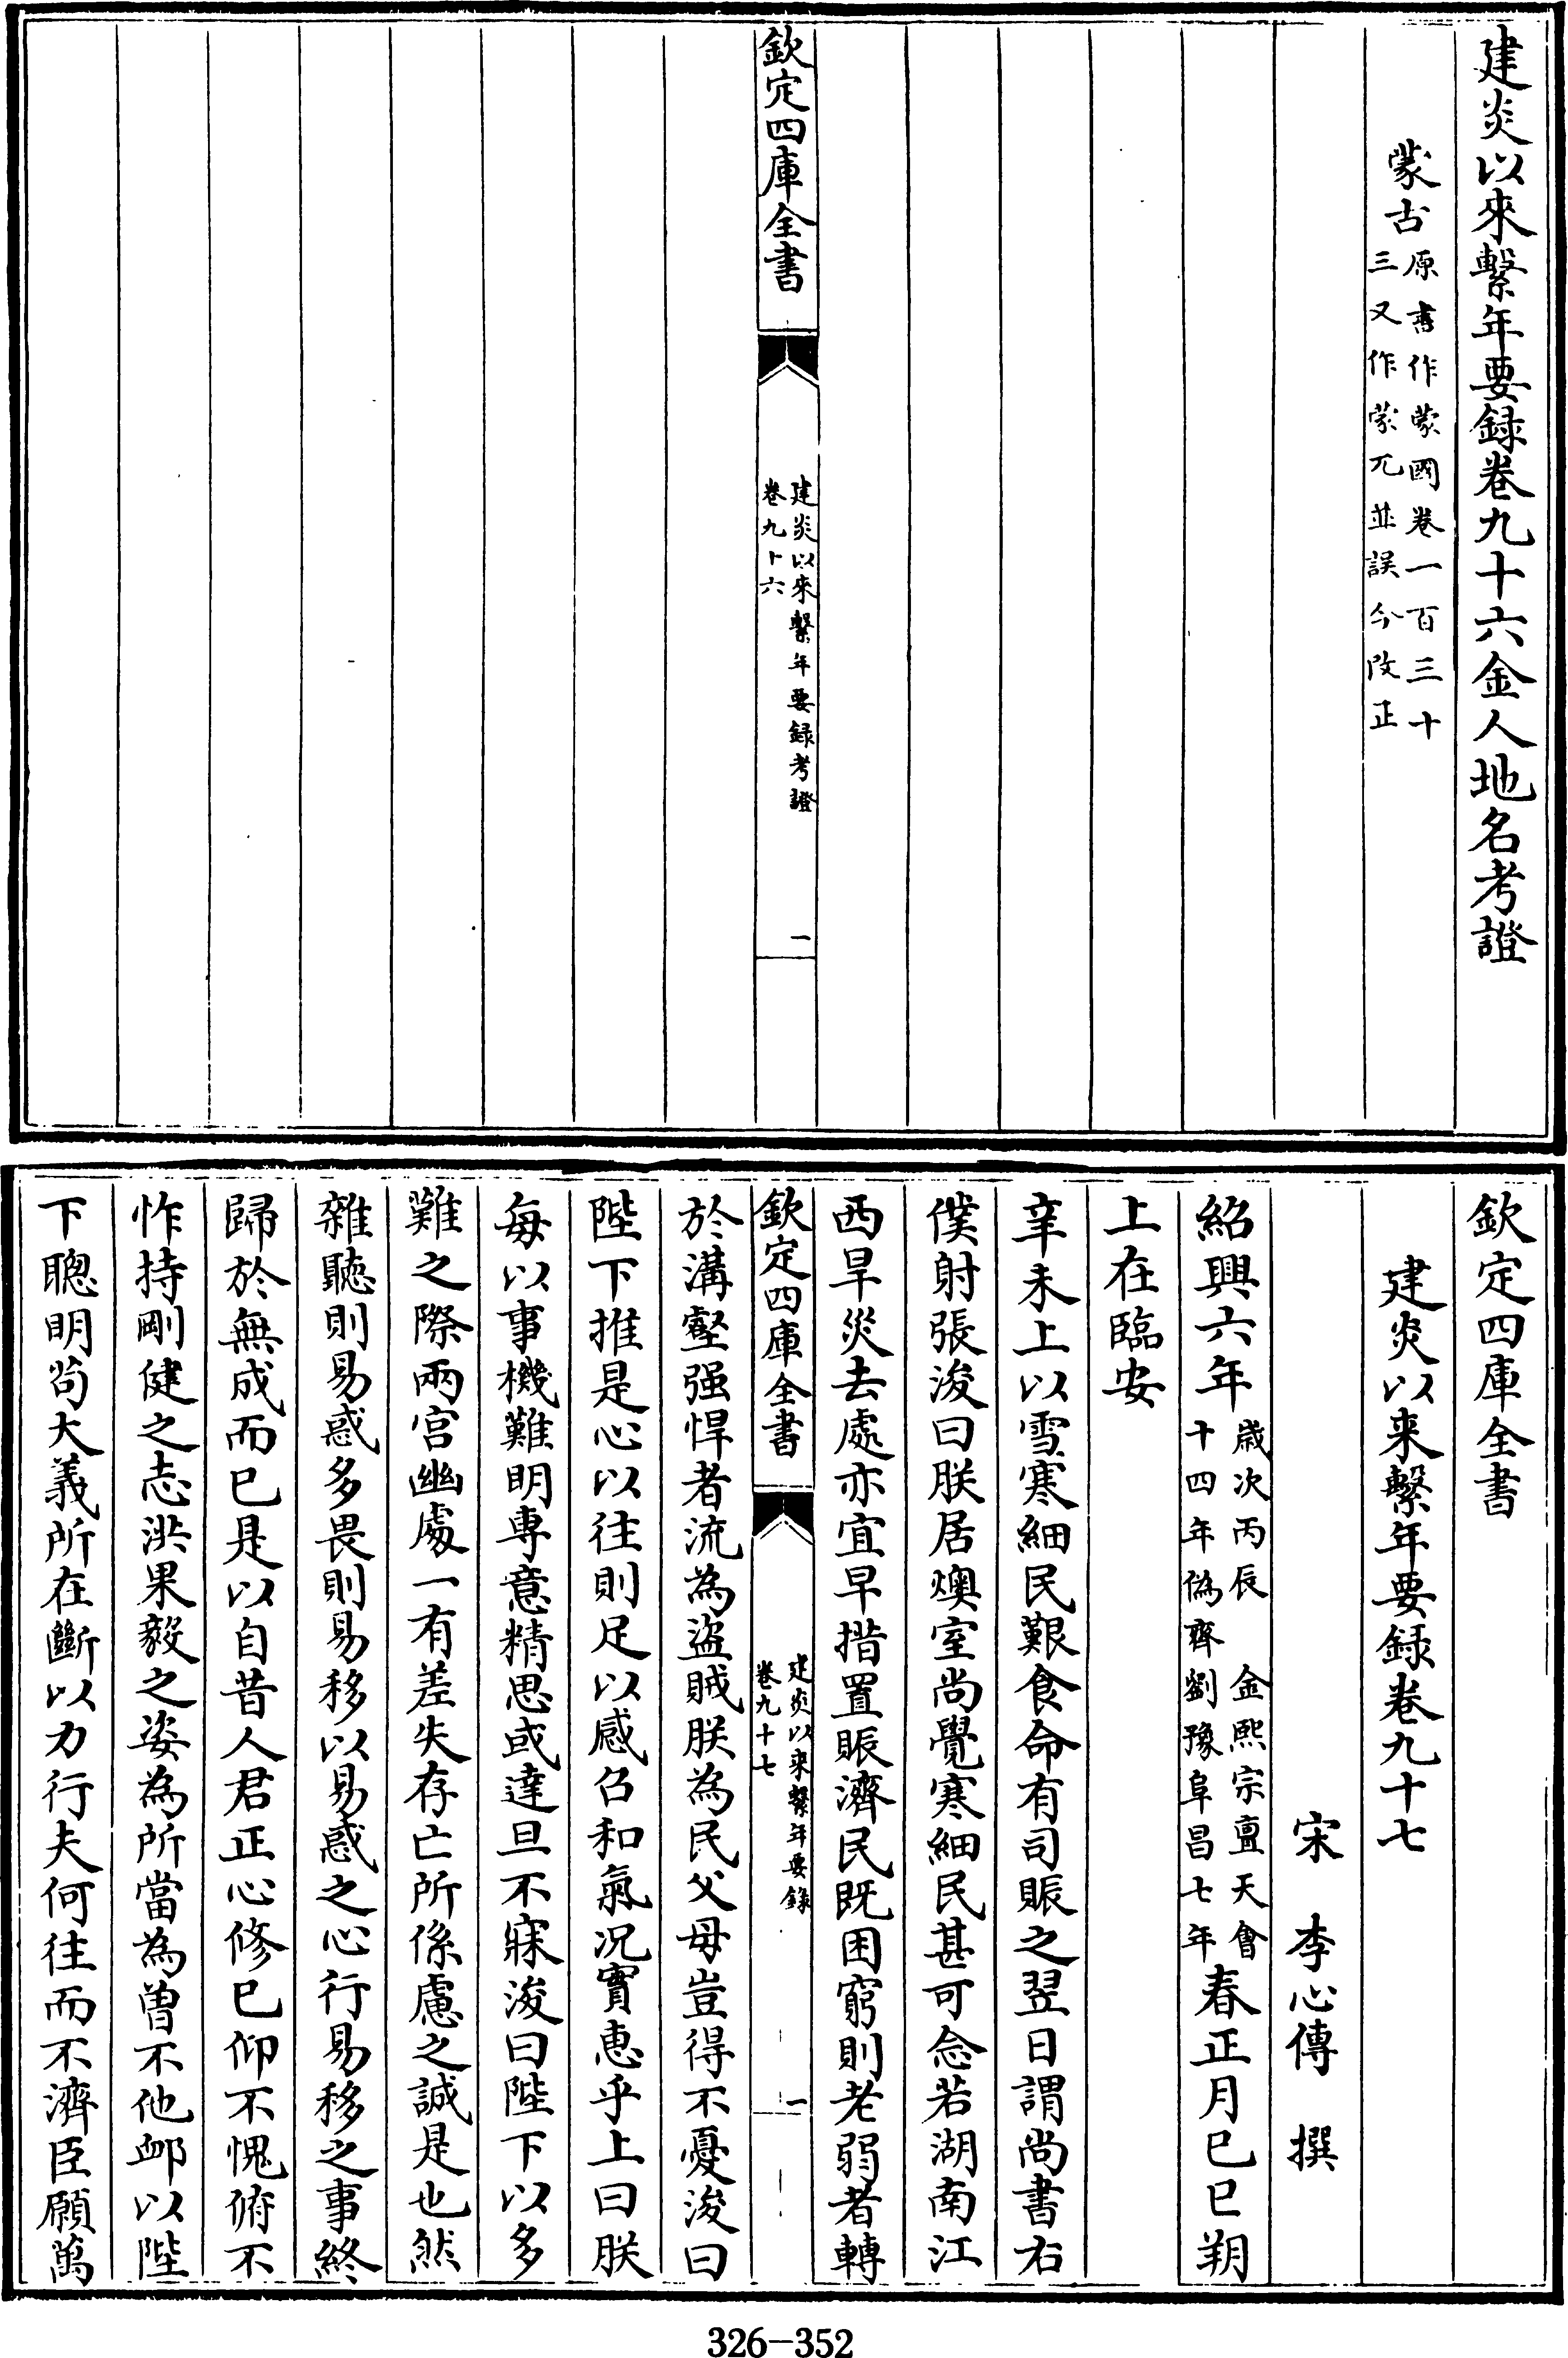 建炎以來繫年要録卷九十六金人地名考證
蒙古原書作蒙國卷一百三十
三又作蒙兀並誤今改正
欽定四庫全書
建炎以來繫年要録考證
卷九十六
一
欽定四庫全書
建炎以来繫年要録卷九十七
宋 李心傳 撰
紹興六年歳次丙辰 金熙宗亶天會
十四年偽齊劉豫阜昌七年春正月已巳朔
上在臨安
辛未上以雪寒細民艱食命有司賑之翌日謂尚書右
僕射張浚曰朕居燠室尚覺寒細民甚可念若湖南江
西旱災去處亦宜早措置賑濟民既困窮則老弱者轉
欽定四庫全書
建炎以来繫年要錄
卷九十七
一
於溝壑强悍者流為盜賊朕為民父母豈得不憂浚曰
陛下推是心以往則足以感召和氣况實惠乎上曰朕
每以事機難明專意精思或達旦不寐浚曰陛下以多
難之際兩宫幽處一有差失存亡所係慮之誠是也然
雜聽則易惑多畏則易移以易惑之心行易移之事終
歸於無成而已是以自昔人君正心修已仰不愧俯不
怍持剛健之志洪果毅之姿為所當為曽不他䘏以陛
下聰明茍大義所在斷以力行夫何往而不濟臣願萬
326-352